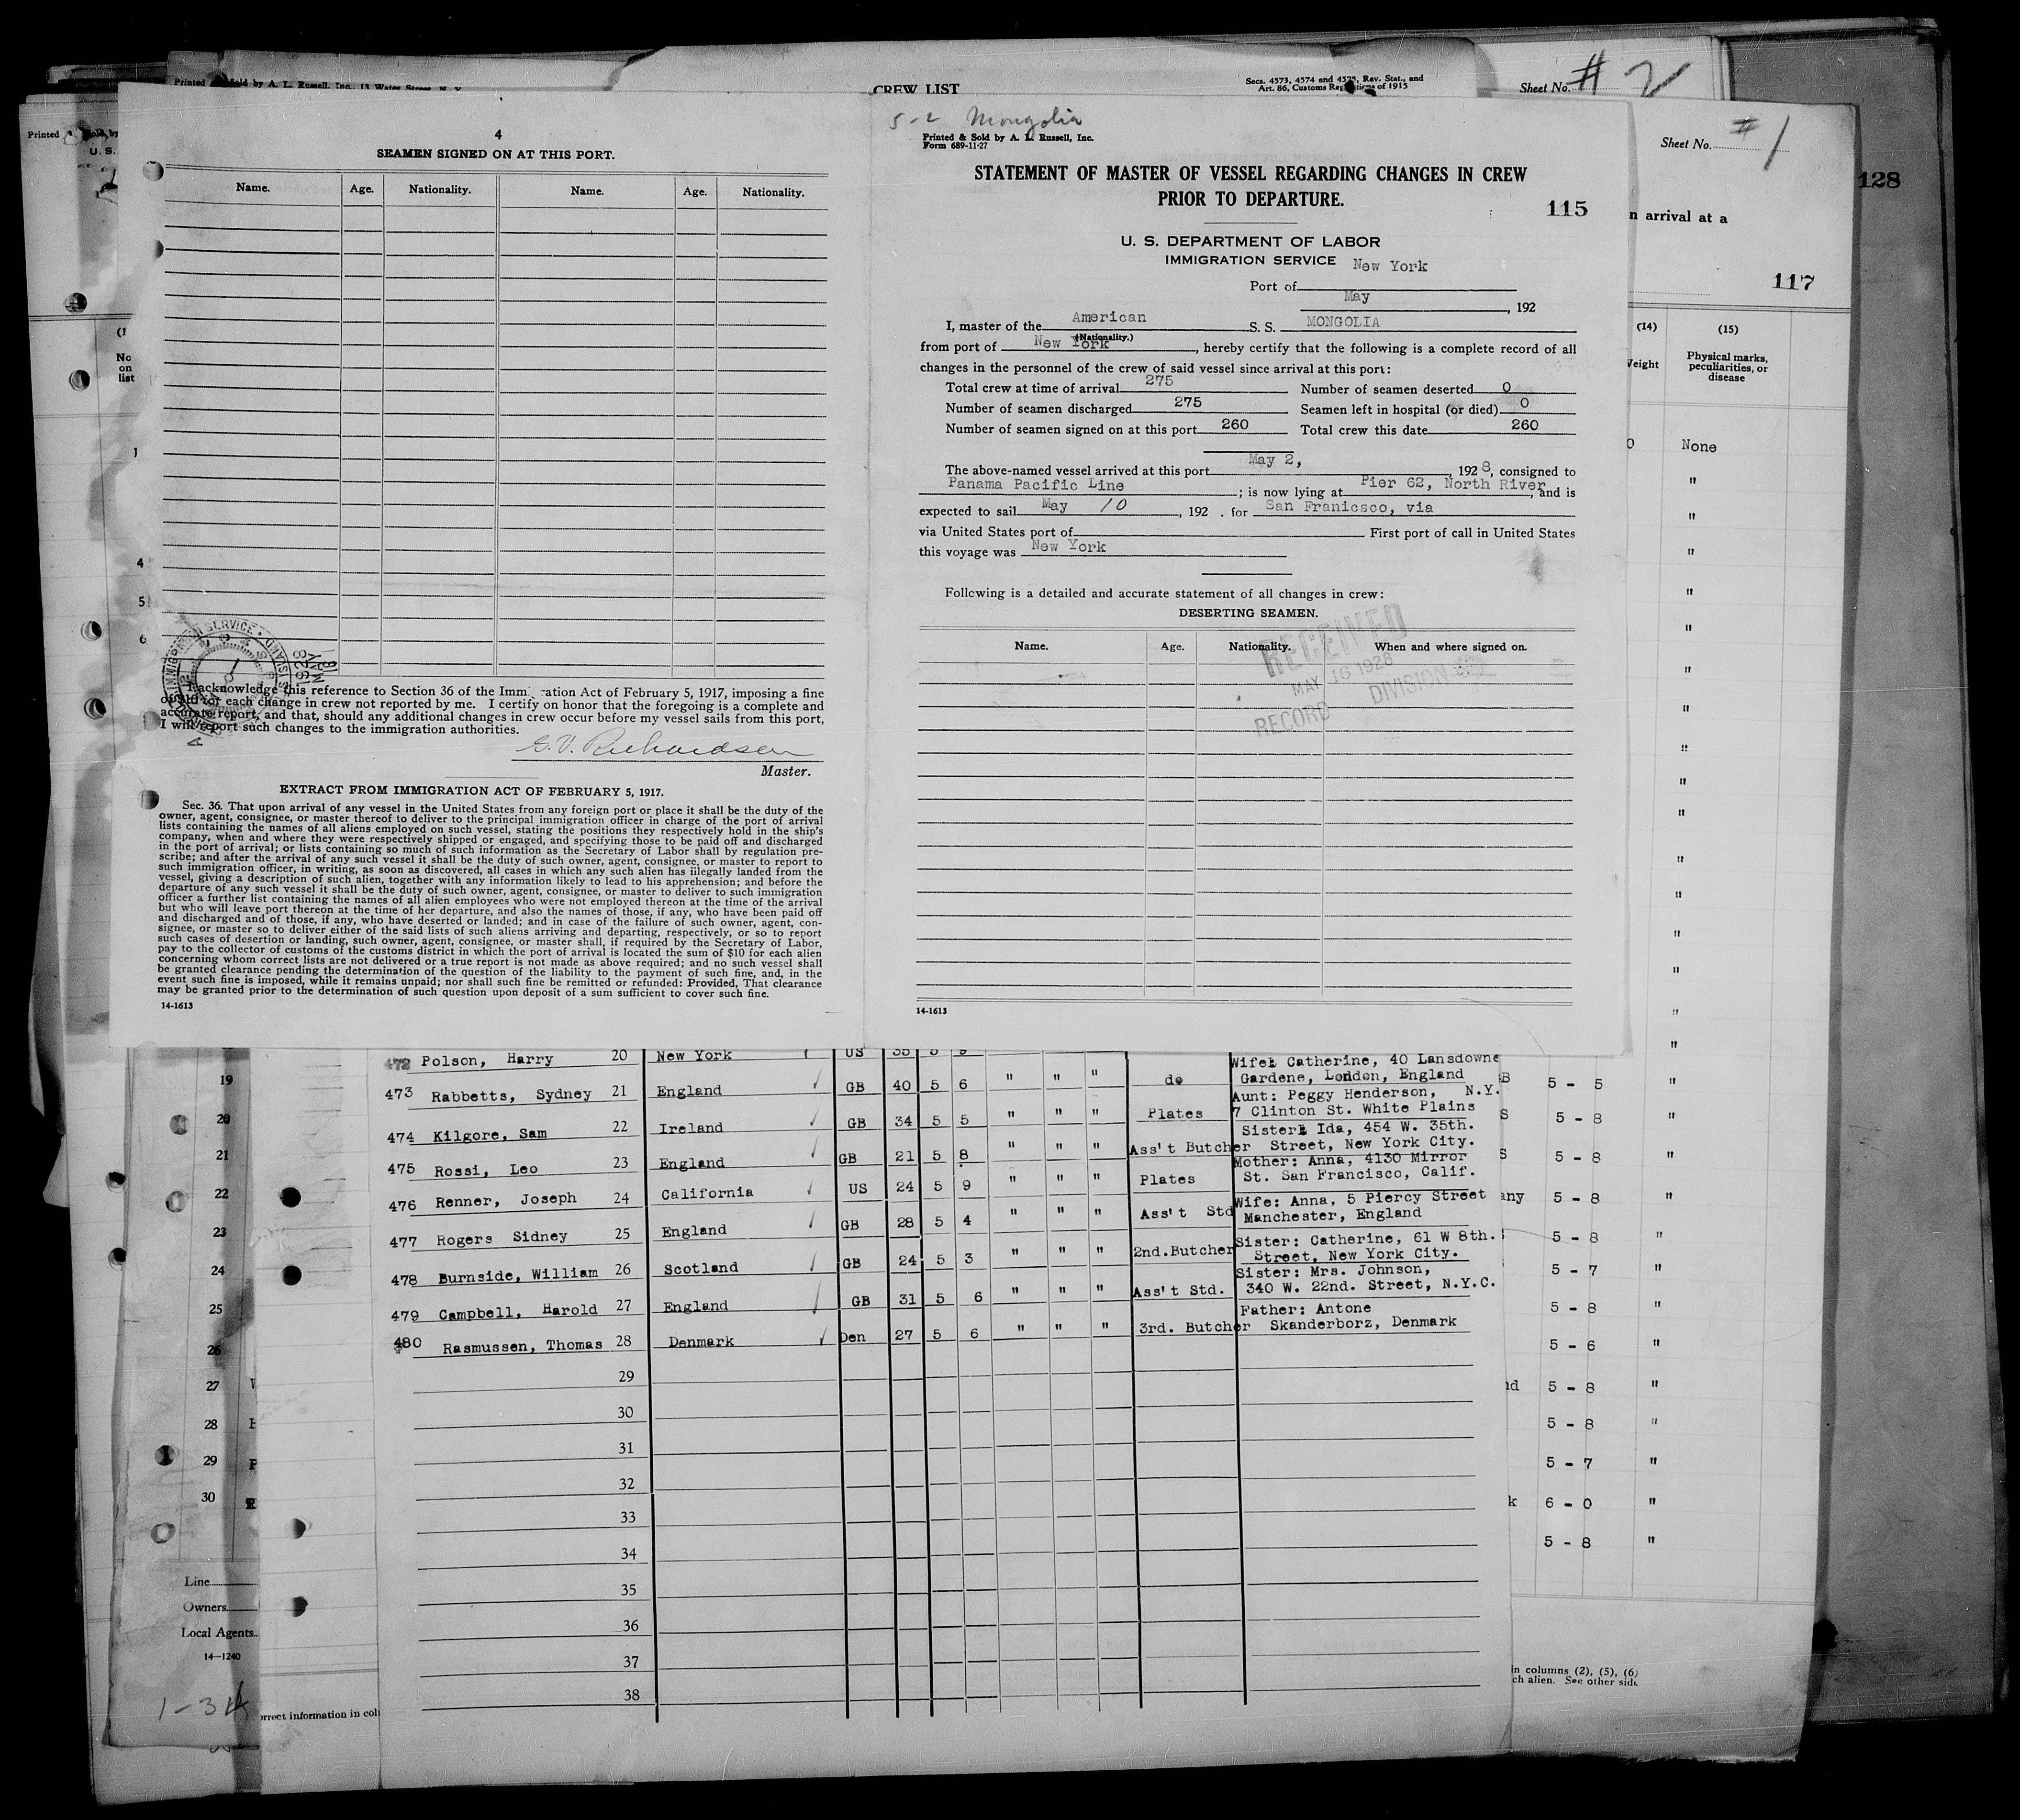 Printed Sold by A. L. Russell, Inc., 13 Water Street, N. Y.
CREW LIST
Secs. 4573, 4574 and 4575, Rev. Stat., and
Art. 86, Customs Regulations of 1915
Sheet No. #2
Printed
U. S.
Sheet No. #1
128
n arrival at a
117
(14)
(15)
Weight
Physical marks,
peculiarities, or
disease
No
on
list
None
4
SEAMEN SIGNED ON AT THIS PORT.
Name. Age. Nationality. Name. Age. Nationality.
I acknowledge this reference to Section 36 of the Immigration Act of February 5, 1917, imposing a fine
of $10 for each change in crew not reported by me. I certify on honor that the foregoing is a complete and
accurate report, and that, should any additional changes in crew occur before my vessel sails from this port,
I will report such changes to the immigration authorities.
G. V. Richardson
Master.
EXTRACT FROM IMMIGRATION ACT OF FEBRUARY 5, 1917.
Sec. 36. That upon arrival of any vessel in the United States from any foreign port or place it shall be the duty of the
owner, agent, consignee, or master thereof to deliver to the principal immigration officer in charge of the port of arrival
lists containing the names of all aliens employed on such vessel, stating the positions they respectively hold in the ship's
company, when and where they were respectively shipped or engaged, and specifying those to be paid off and discharged
in the port of arrival; or lists containing so much of such information as the Secretary of Labor shall by regulation pre-
scribe; and after the arrival of any such vessel it shall be the duty of such owner, agent, consignee, or master to report to
such immigration officer, in writing, as soon as discovered, all cases in which any such alien has illegally landed from the
vessel, giving a description of such alien, together with any information likely to lead to his apprehension; and before the
departure of any such vessel it shall be the duty of such owner, agent, consignee, or master to deliver to such immigration
officer a further list containing the names of all alien employees who were not employed thereon at the time of the arrival
but who will leave port thereon at the time of her departure, and also the names of those, if any, who have been paid off
and discharged and of those, if any, who have deserted or landed; and in case of the failure of such owner, agent, con-
signee, or master so to deliver either of the said lists of such aliens arriving and departing, respectively, or so to report
such cases of desertion or landing, such owner, agent, consignee, or master shall, if required by the Secretary of Labor,
pay to the collector of customs of the customs district in which the port of arrival is located the sum of $10 for each alien
concerning whom correct lists are not delivered or a true report is not made as above required; and no such vessel shall
be granted clearance pending the determination of the question of the liability to the payment of such fine, and, in the
event such fine is imposed, while it remains unpaid; nor shall such fine be remitted or refunded: Provided, That clearance
may be granted prior to the determination of such question upon deposit of a sum sufficient to cover such fine.
14-1613
5-2 Mongolia
Printed & Sold by A. L. Russell, Inc.
Form 689-11-27
STATEMENT OF MASTER OF VESSEL REGARDING CHANGES IN CREW
PRIOR TO DEPARTURE.
115
U. S. DEPARTMENT OF LABOR
IMMIGRATION SERVICE
Port of New York
May , 192
I, master of the American S. S. MONGOLIA
(Nationality.)
from port of New York, hereby certify that the following is a complete record of all
changes in the personnel of the crew of said vessel since arrival at this port:
Total crew at time of arrival 275 Number of seamen deserted 0
Number of seamen discharged 275 Seamen left in hospital (or died) 0
Number of seamen signed on at this port 260 Total crew this date 260
The above-named vessel arrived at this port May 2, , 1928, consigned to
Panama Pacific Line ; is now lying at Pier 62, North River, and is
expected to sail May 10, 192 . for San Franicsco, via
via United States port of First port of call in United States
this voyage was New York
Following is a detailed and accurate statement of all changes in crew:
DESERTING SEAMEN.
Name. Age. Nationality. When and where signed on.
RECEIVED
MAY 16 1928
RECORD DIVISION
14-1613
472 Polson, Harry 20 New York US 35 5 9
473 Rabbetts, Sydney 21 England GB 40 5 6 " " " do Wife: Catherine, 40 Lansdowne
Gardene, London, England
474 Kilgore, Sam 22 Ireland GB 34 5 5 " " " Plates Aunt: Peggy Henderson, N.Y.
7 Clinton St. White Plains
475 Rossi, Leo 23 England GB 21 5 8 " " " Ass't Butcher Sister: Ida, 454 W. 35th.
Street, New York City.
476 Renner, Joseph 24 California US 24 5 9 " " " Plates Mother: Anna, 4130 Mirror
St. San Francisco, Calif.
477 Rogers Sidney 25 England GB 28 5 4 " " " Ass't Std Wife: Anna, 5 Piercy Street
Manchester, England
478 Burnside, William 26 Scotland GB 24 5 3 " " " 2nd.Butcher Sister: Catherine, 61 W 8th.
Street, New York City.
479 Campbell, Harold 27 England GB 31 5 6 " " " Ass't Std. Sister: Mrs. Johnson,
340 W. 22nd. Street, N.Y.C.
480 Rasmussen, Thomas 28 Denmark Den 27 5 6 " " " 3rd. Butcher Father: Antone
Skanderborz, Denmark
29
30
31
32
33
34
35
36
37
38
4
5
6
19
20
21
22
23
24
25
26
27
28
29
30
Line
Owners
Local Agents
14-1240
1-34
orrect information in col
5 - 5 "
5 - 8 "
5 - 8 "
any 5 - 8 "
5 - 8 "
5 - 7 "
5 - 8 "
5 - 6 "
nd 5 - 8 "
5 - 8 "
5 - 7 "
k 6 - 0 "
5 - 8 "
in columns (2), (5), (6)
ch alien. See other side